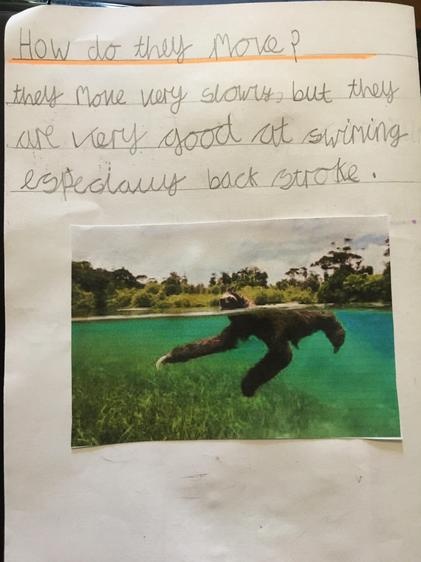 How do they Move?
they Move very slowly, but they
are very good at swiming
especially back stroke.